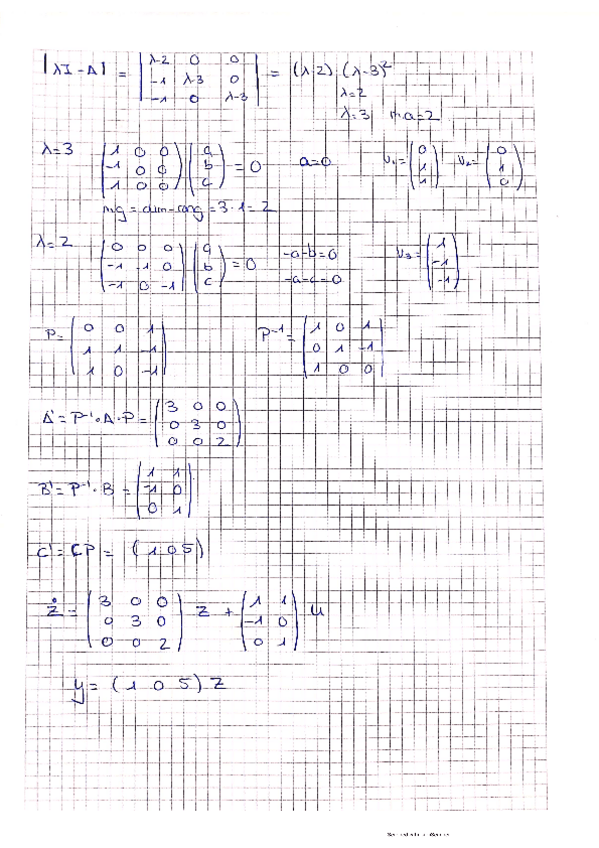 |λI - A| = | λ-2 0 0 ; -1 λ-3 0 ; -1 0 λ-3 | = (λ-2) · (λ-3)²
λ=2
λ=3 m.a=2
λ=3 ( 1 0 0 ; -1 0 0 ; -1 0 0 ) ( a ; b ; c ) = 0 a=0 v₁= ( 0 ; 1 ; 1 ) v₂= ( 0 ; 1 ; 0 )
m.g = dim - rang = 3 - 1 = 2
λ=2 ( 0 0 0 ; -1 -1 0 ; -1 0 -1 ) ( a ; b ; c ) = 0 -a-b=0 -a-c=0 v₃= ( 1 ; -1 ; -1 )
P= ( 0 0 1 ; 1 1 -1 ; 1 0 -1 ) P⁻¹= ( 1 0 1 ; 0 1 -1 ; 1 0 0 )
A' = P⁻¹·A·P = ( 3 0 0 ; 0 3 0 ; 0 0 2 )
B' = P⁻¹·B = ( 1 1 ; -1 0 ; 0 1 )
C' = CP = ( 1 0 5 )
ż = ( 3 0 0 ; 0 3 0 ; 0 0 2 ) z + ( 1 1 ; -1 0 ; 0 1 ) u
y = ( 1 0 5 ) z